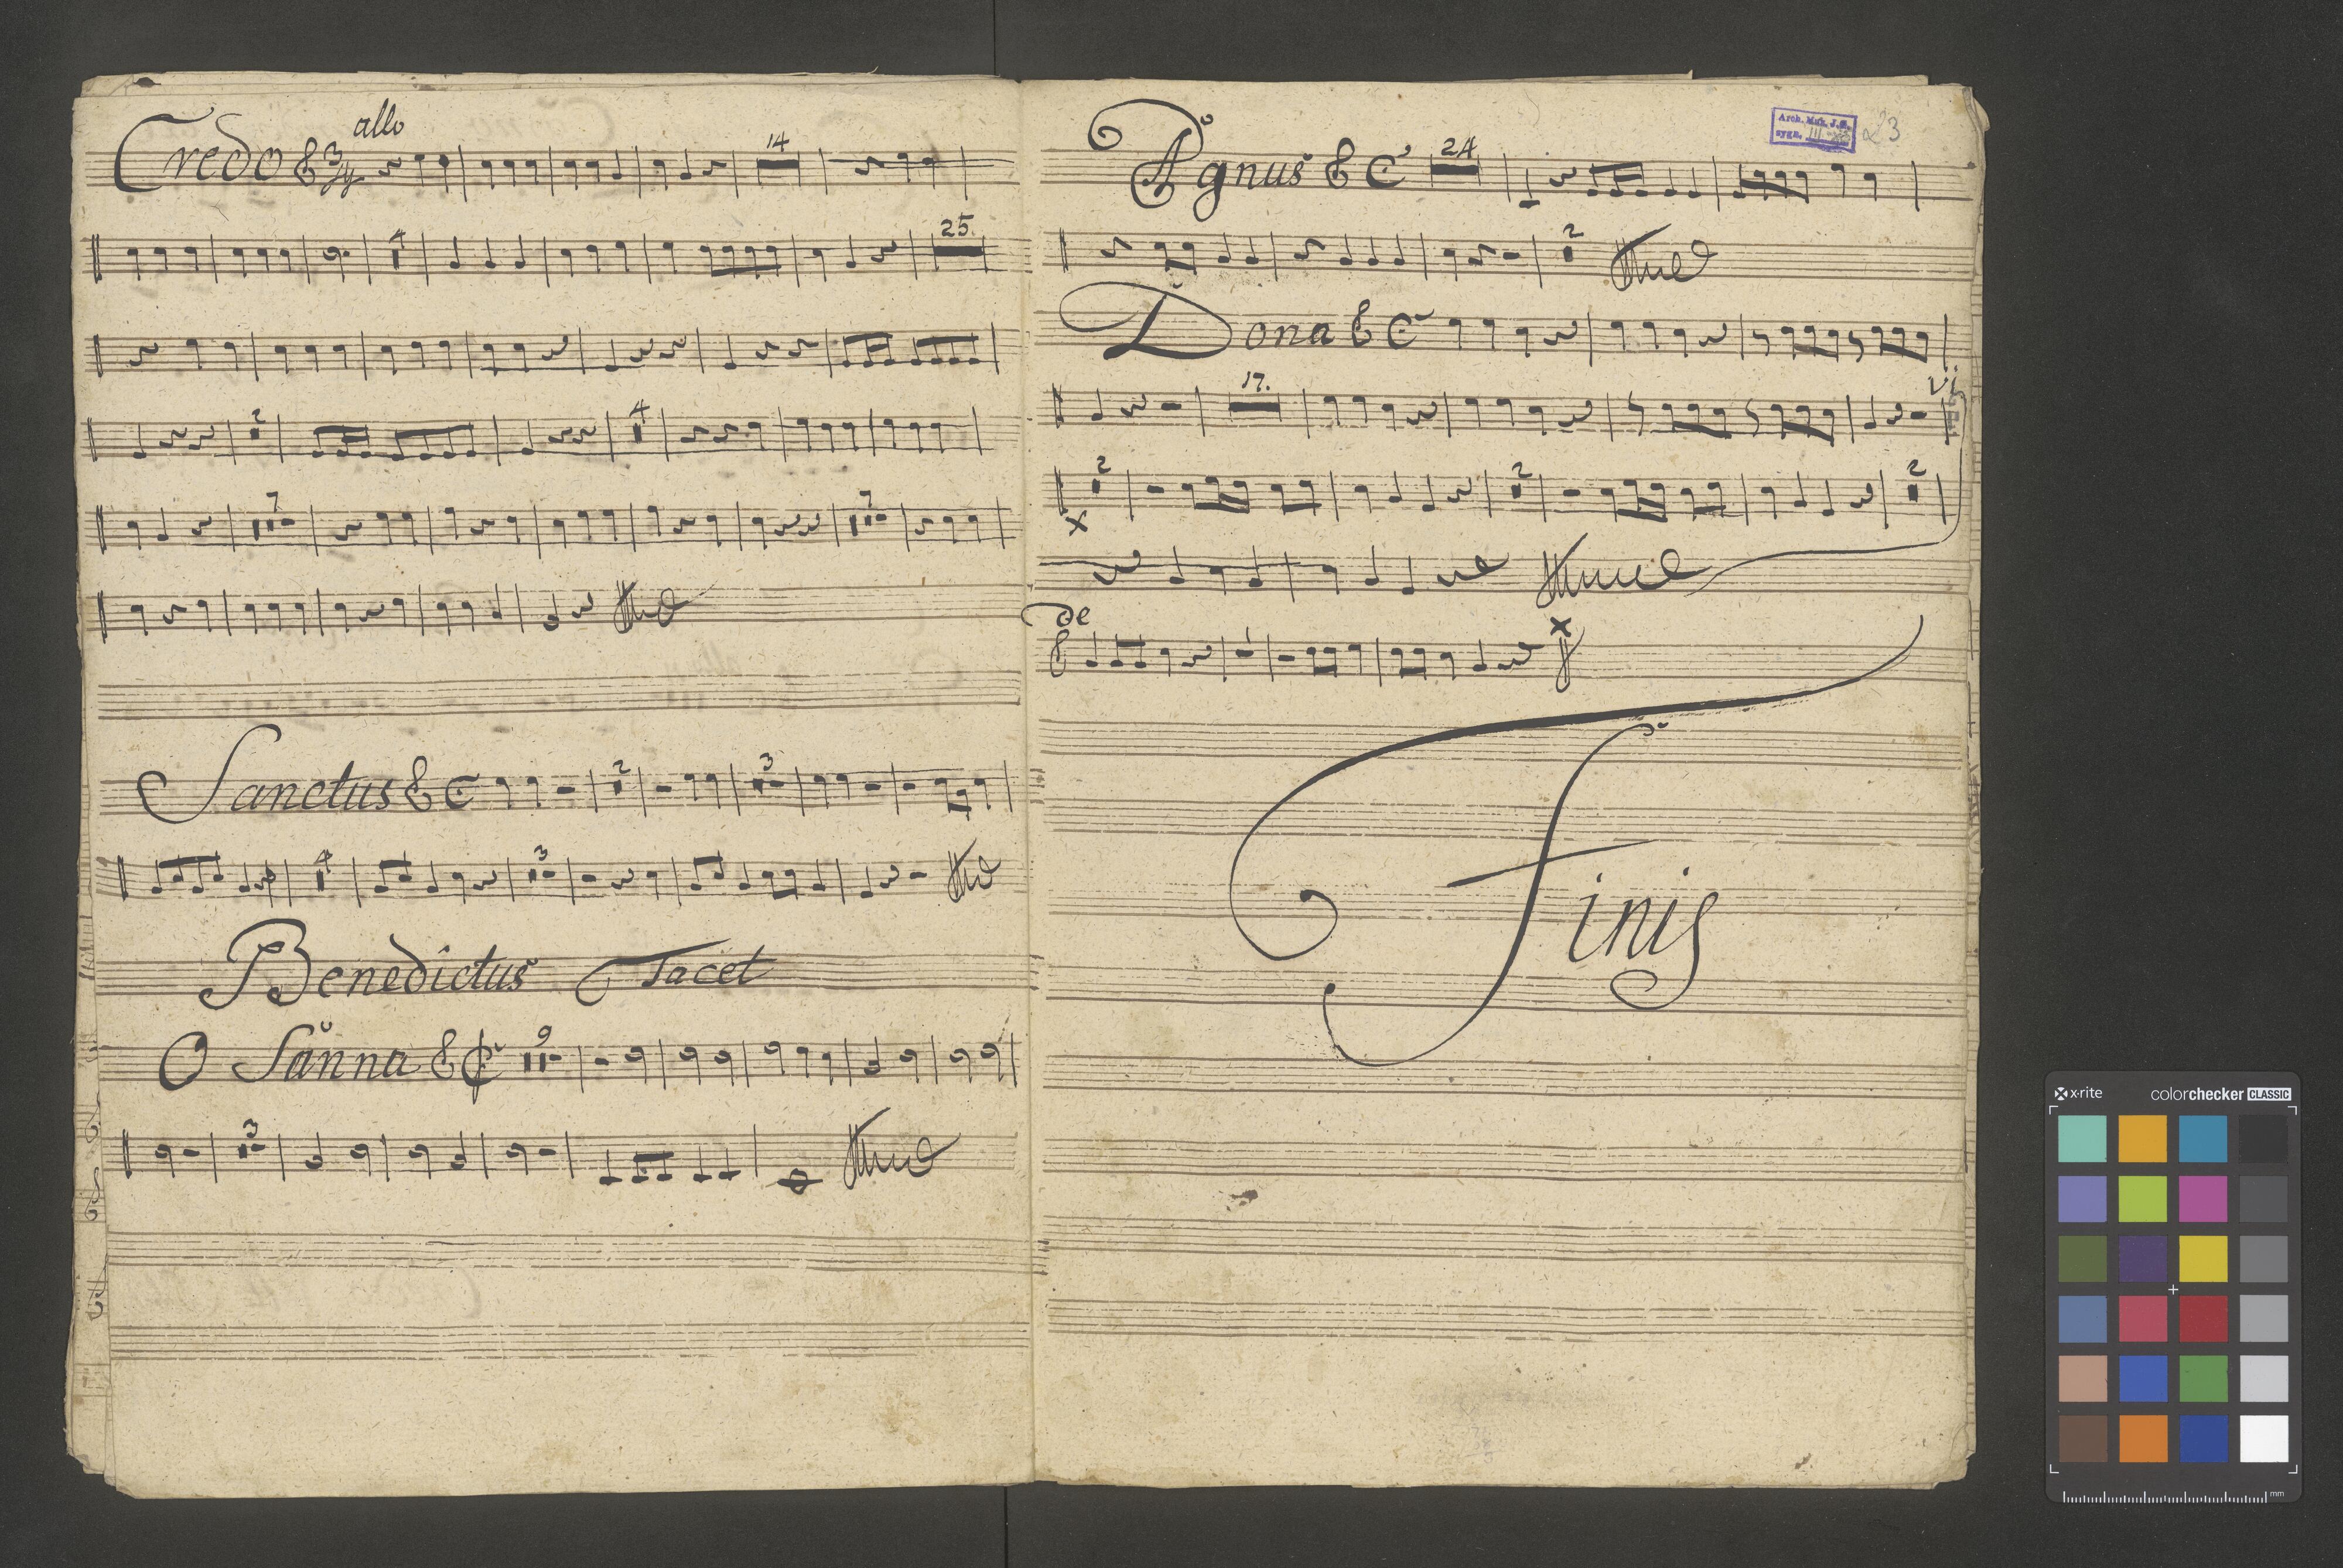 allo
Credo 3/4 14
4 25.
2 4
7 7
Sanctus C 2 3
4 3
Benedictus Tacet
O Sanna 9
3
Arch. Muz. J.G.
sygn. III- 23
Agnus 24
2
Dona
17.
Vi
2 2 2
x
de
x
Finis
x-rite colorchecker CLASSIC
mm